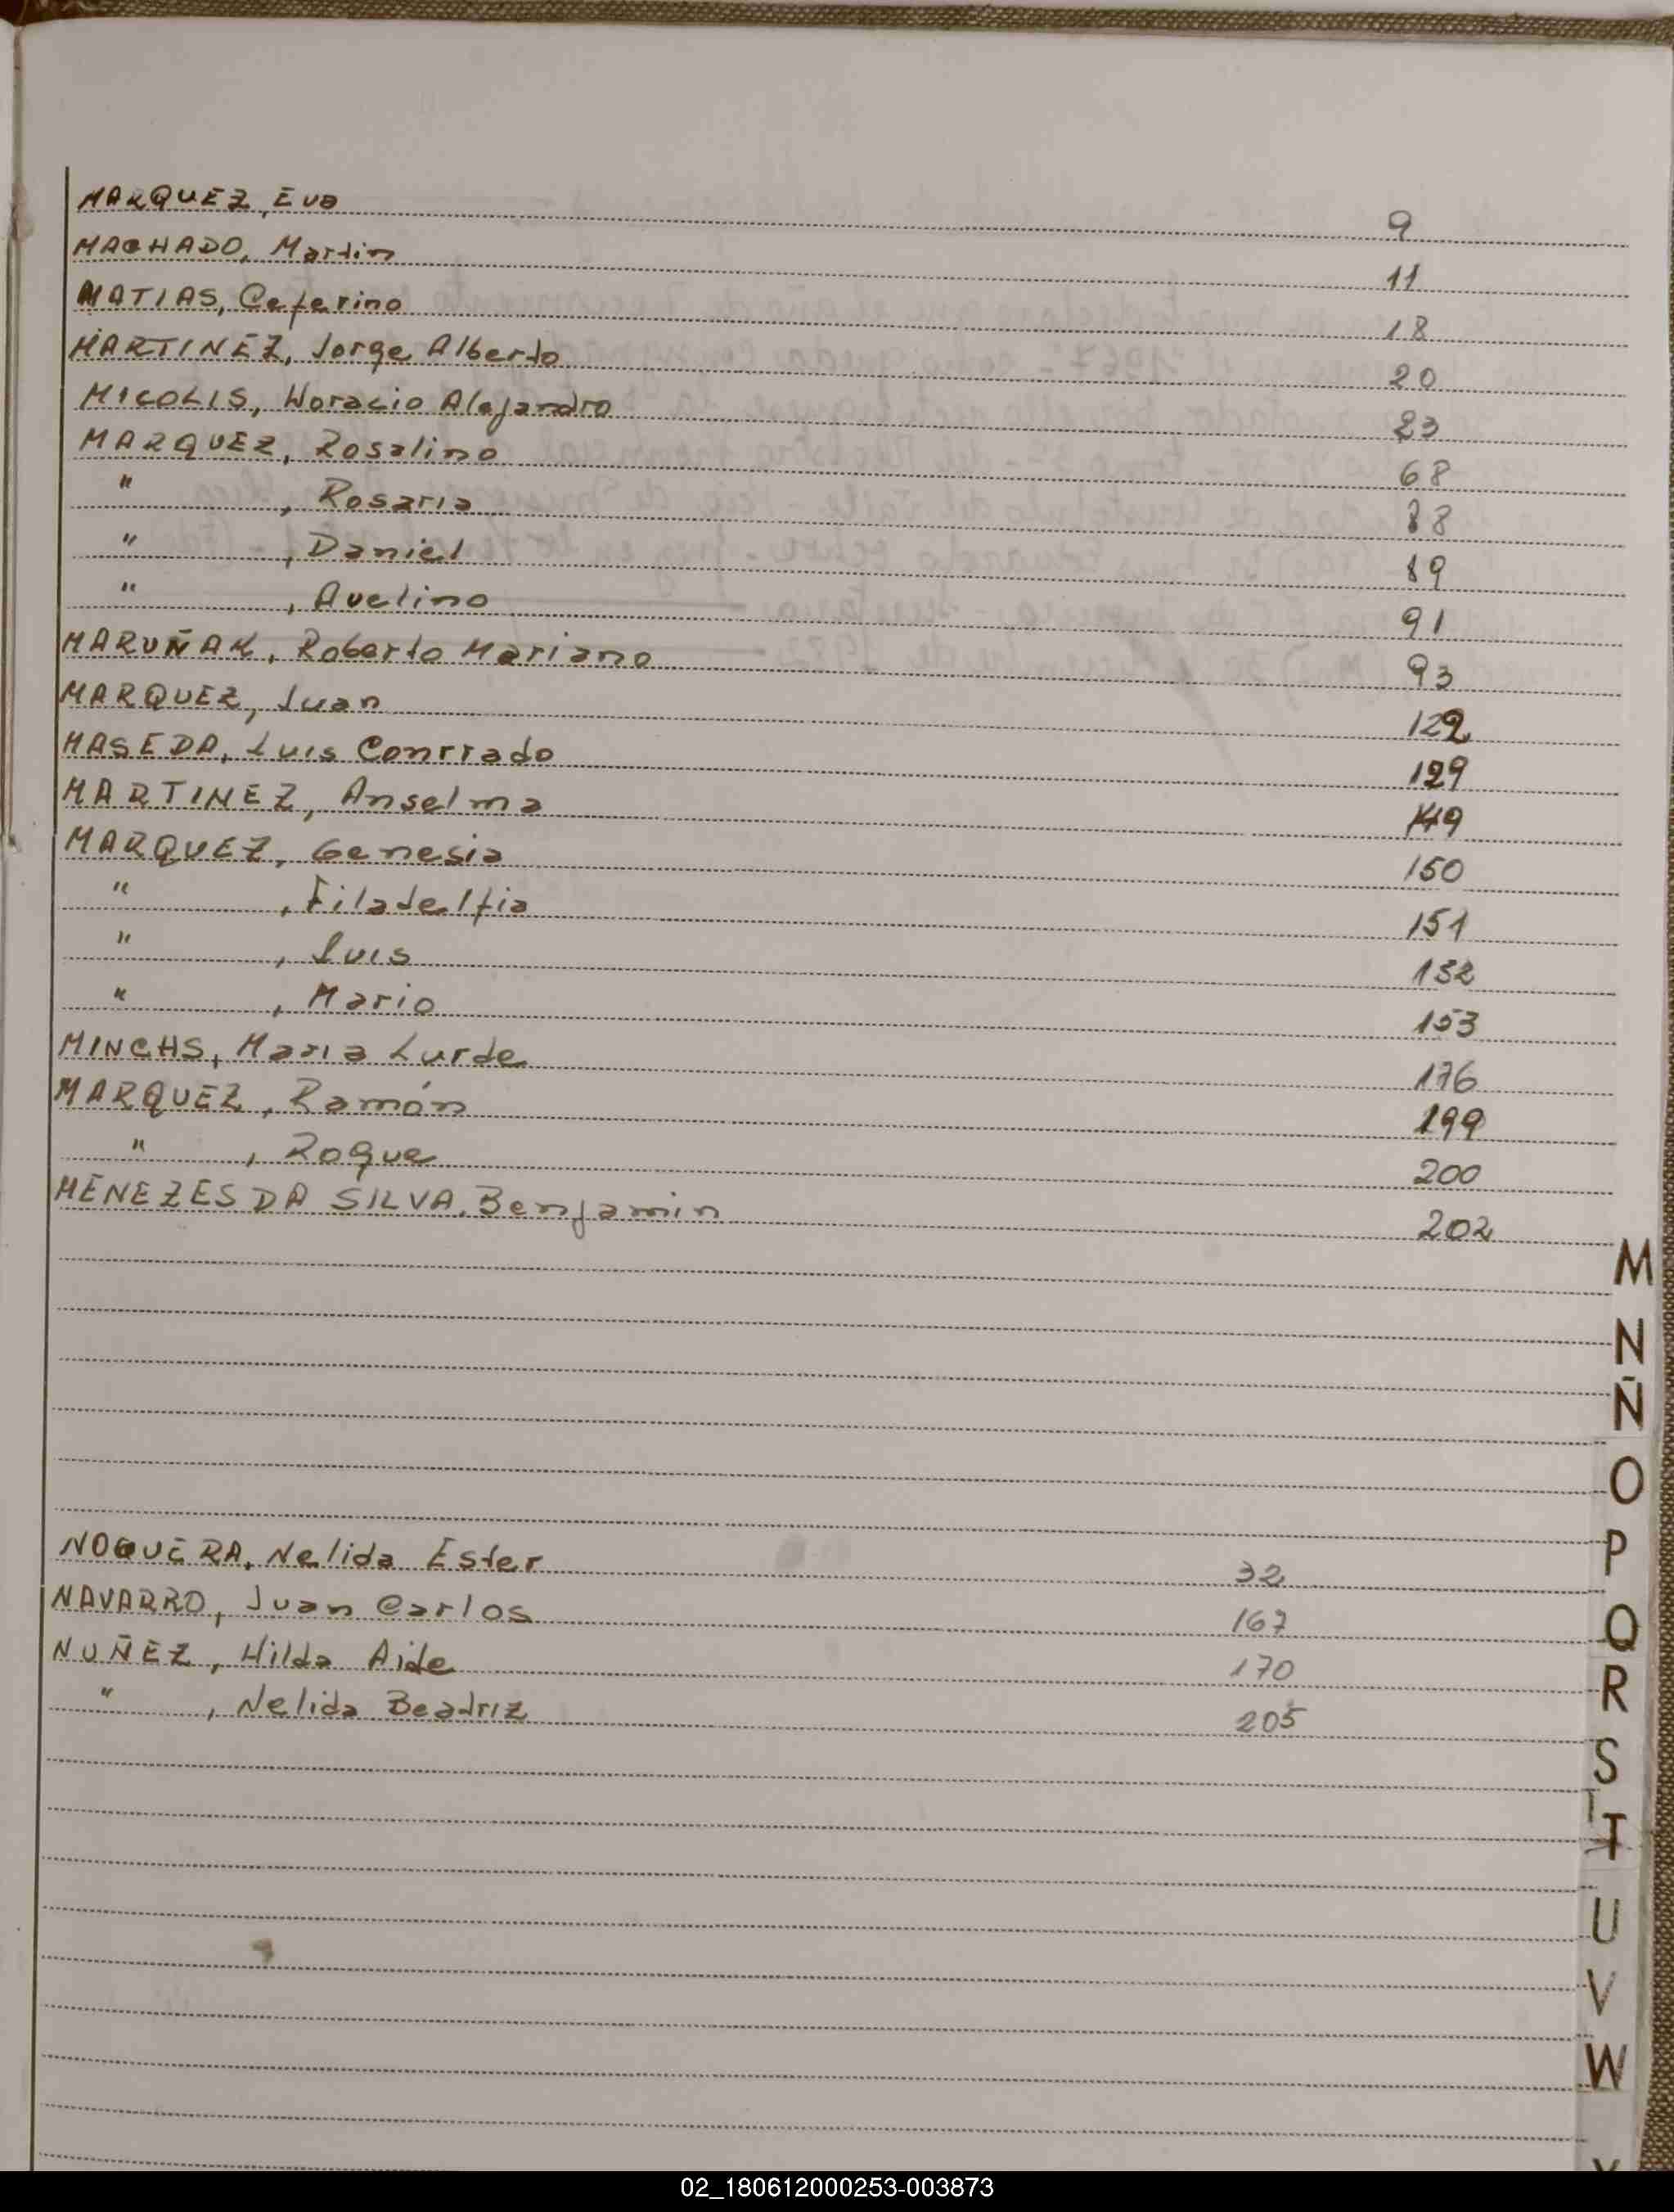 MARQUEZ, Eva 9
MACHADO, Martin 11
MATIAS, Ceferino 18
MARTINEZ, Jorge Alberto 20
MICOLIS, Horacio Alejandro 23
MARQUEZ, Rosalino 68
" , Rosaria 88
" , Daniel 89
" , Avelino 91
MARUÑAK, Roberto Mariano 93
MARQUEZ, Juan 122
MASEDA, Luis Conrrado 129
MARTINEZ, Anselma 149
MARQUEZ, Genesia 150
" , Filadelfia 151
" , Luis 152
" , Mario 153
MINCHS, Maria Lurde 176
MARQUEZ, Ramón 199
" , Roque 200
MENEZES DA SILVA, Benjamin 202
M
N
Ñ
O
NOGUERA, Nelida Ester 32
P
NAVARRO, Juan Carlos 167
Q
NUÑEZ, Hilda Aide 170
R
" , Nelida Beatriz 205
S
T
T
U
V
W
02_180612000253-003873